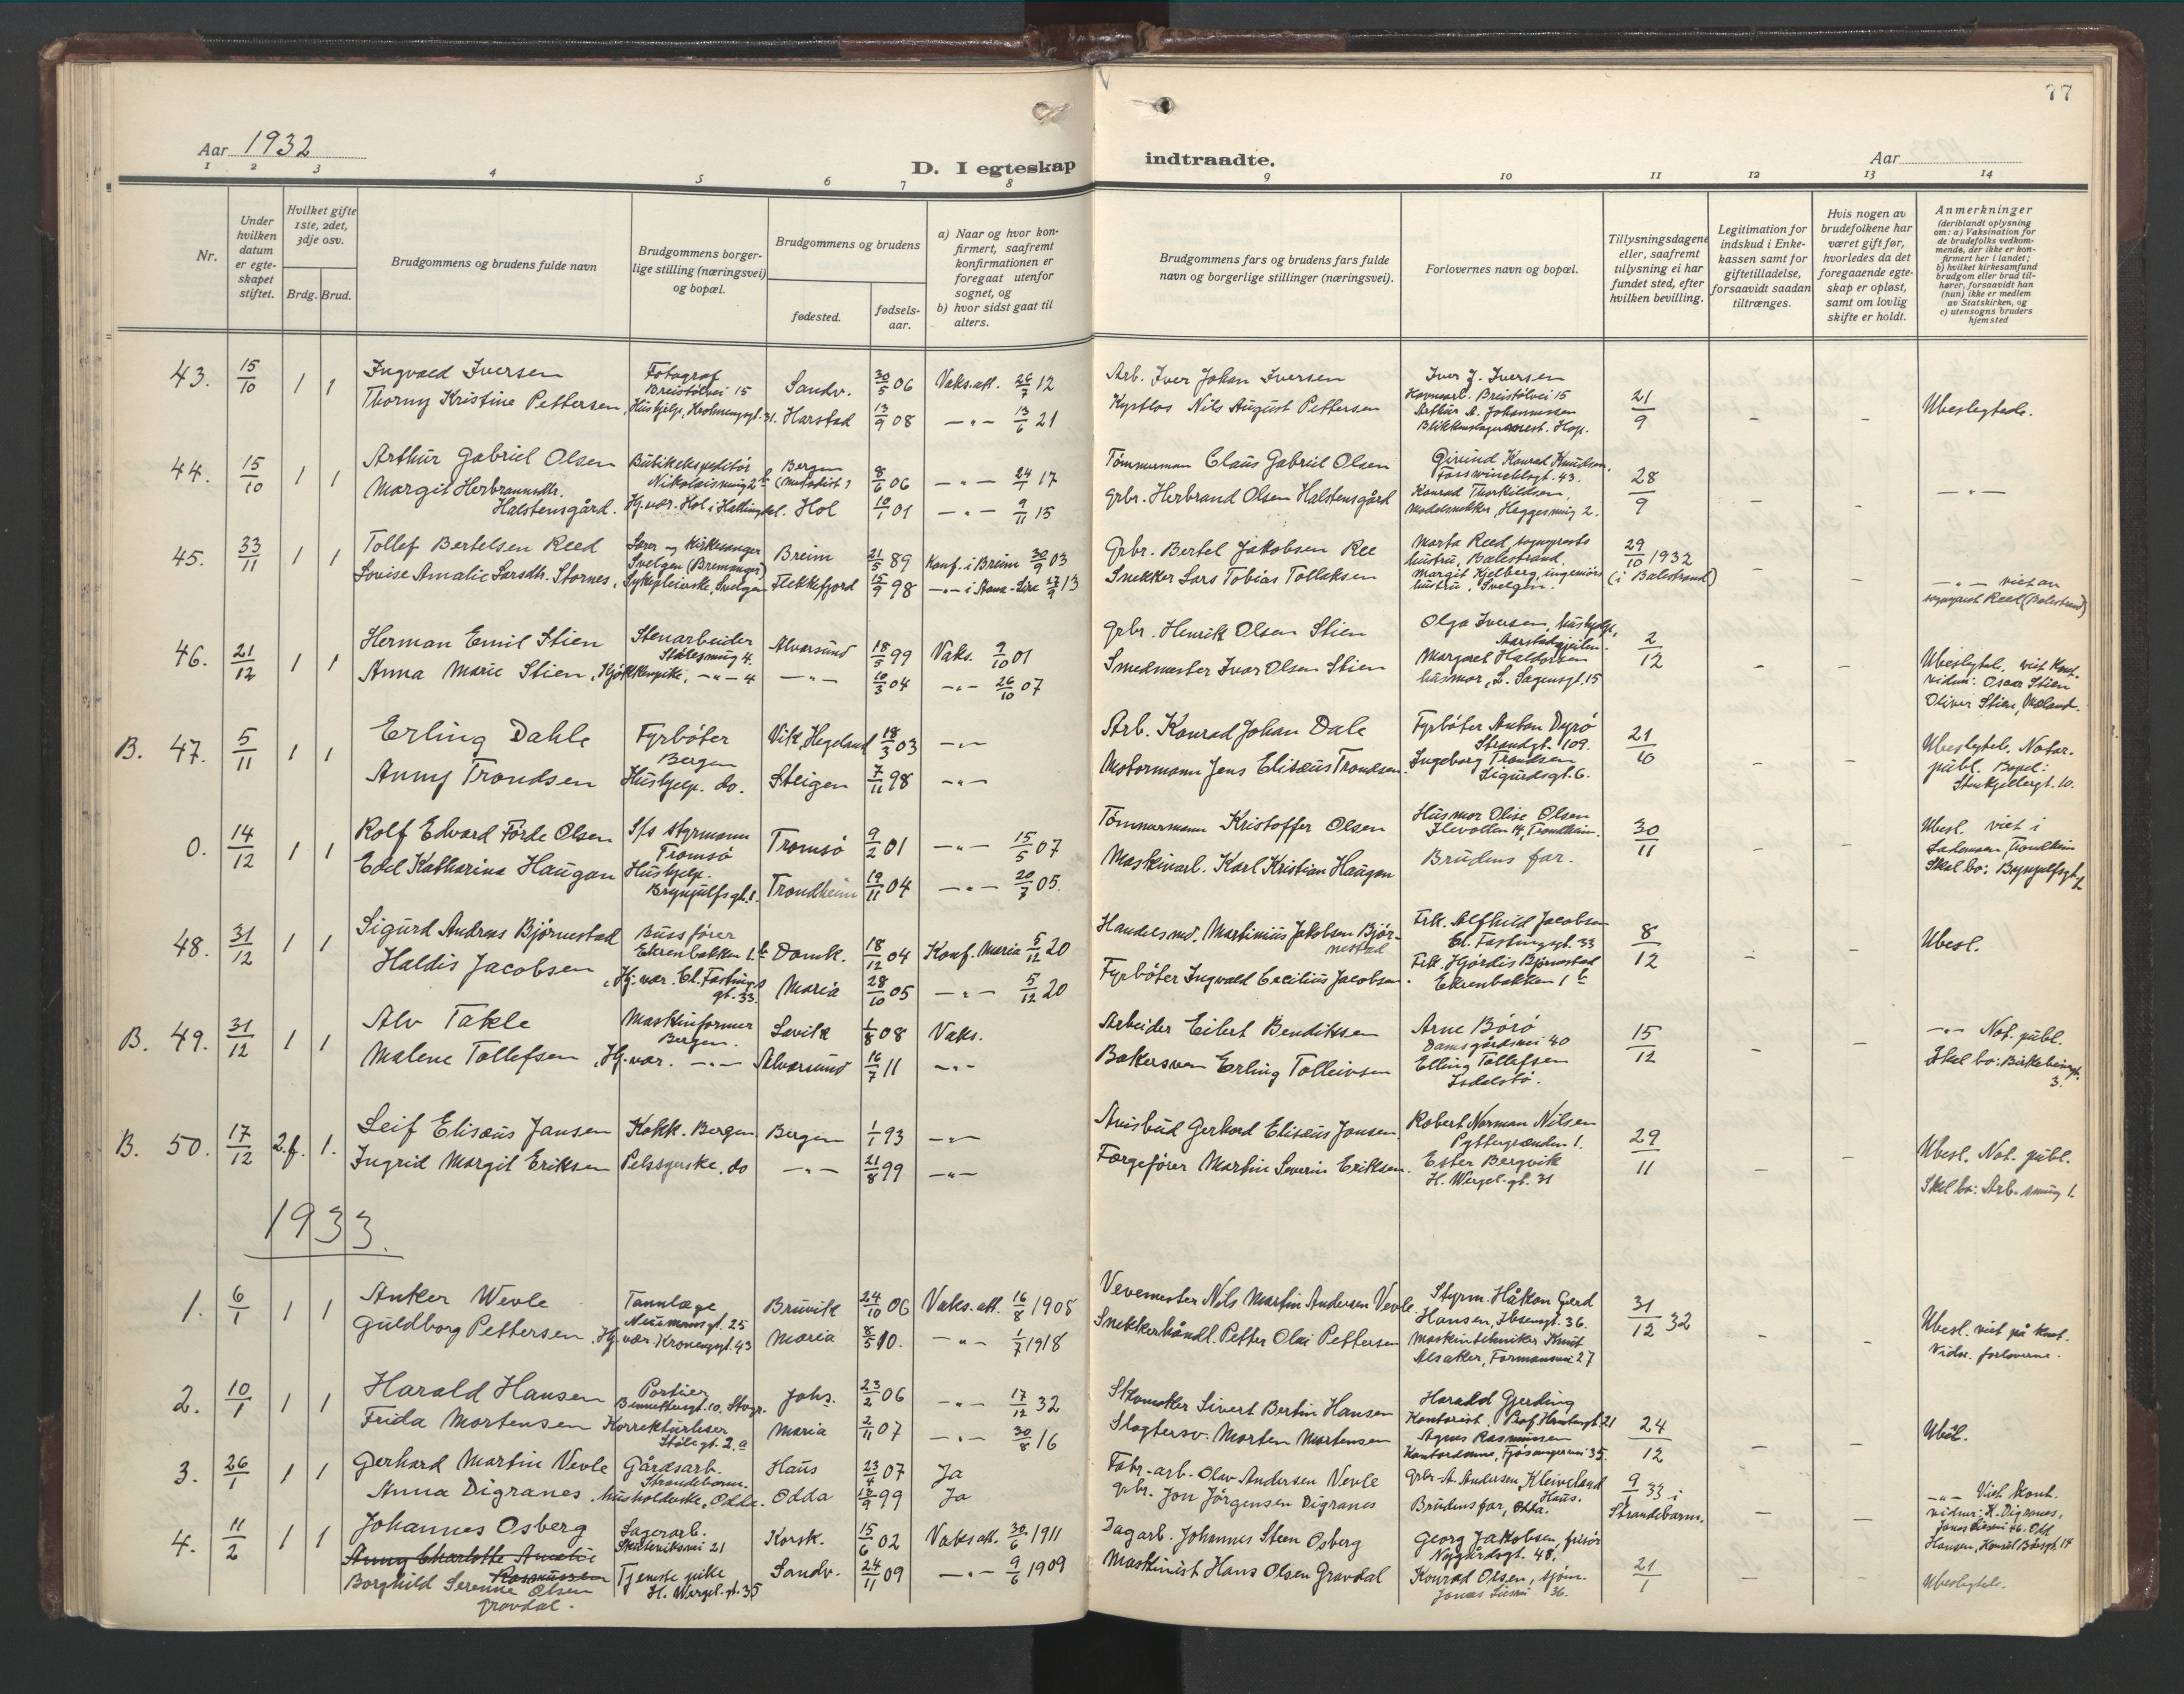 77
Aar 1932
D. I egteskap indtraadte.
Aar
1 2 3 4 5 6 7 8 9 10 11 12 13 14
Nr.
Under hvilken datum er egteskapet stiftet.
Hvilket gifte 1ste, 2det, 3dje osv.
Brdg. Brud.
Brudgommens og brudens fulde navn
Brudgommens borgerlige stilling (næringsvei) og bopæl.
Brudgommens og brudens
fødested.
fødselsaar.
a) Naar og hvor konfirmert, saafremt konfirmationen er foregaat utenfor sognet, og
b) hvor sidst gaat til alters.
Brudgommens fars og brudens fars fulde navn og borgerlige stillinger (næringsvei).
Forlovernes navn og bopæl.
Tillysningsdagene eller, saafremt tillysning ei har fundet sted, efter hvilken bevilling.
Legitimation for indskud i Enkekassen samt for giftetilladelse, forsaavidt saadan tiltrænges.
Hvis nogen av brudefolkene har været gift før, hvorledes da det foregaaende egteskap er opløst, samt om lovlig skifte er holdt.
Anmerkninger
(deriblandt oplysning om: a) Vaksination for de brudefolks vedkommende, der ikke er konfirmert her i landet;
b) hvilket kirkesamfund brudgom eller brud tilhører, forsaavidt han (hun) ikke er medlem av Statskirken, og
c) utensogns bruders hjemsted
43. 15/10 1 1 Ingvald Iversen Fotograf Breistølvei 15 Sandv. 30/5 06 Vaks.att. 26/7 12 Arb. Iver Johan Iversen Iver J. Iversen Havnearb. Breistølvei 15 21/9 - - Ubeslegtede.
Thorny Kristine Pettersen, Hushjelp, Harstad 13/9 08 -"- 13/6 21 Nils August Pettersen Arthur A. Johannessen Blikkenslagermest. Hop.
44. 15/10 1 1 Arthur Gabriel Olsen Butikekspeditør Bergen (Metodist) 8/6 06 -"- 24/7 17 Tømmermann Claus Gabriel Olsen Konrad Knudsen, 28/9 - - -"-
Margit Herbrandsdtr. Halstensgård. Hj.vær. Hol i Hallingdal. Hol 10/1 01 -"- 9/11 15 Grbr. Herbrand Olsen Halstensgård Konrad Thorkildsen, Modelsnekker, Heggesmug 2.
45. 33/11 1 1 Tollef Bertelsen Reed Lærer og Kirkesanger Svelgen (Bremanger) Breim 21/5 89 Konf. i Breim 30/9 03 Grbr. Bertel Jakobsen Ree Marta Reed, sogneprests hustru, Balestrand. 29/10 1932 (i Balestrand) - - -"- viet av sogneprest Reed (Balestrand)
Lovise Amalie Larsdtr. Stornes, Sykepleierske, Svelgen Flekkefjord 15/9 98 -"- 13 Snekker Lars Tobias Tollaksen Margit Kjelberg, ingeniørs hustru, Svelgen.
46. 21/12 1 1 Herman Emil Stien Stenarbeider Stølesmug 4. Alversund 18/5 99 Vaks. 01 Grbr. Henrik Olsen Stien Olga Iversen, hushjelp, 2/12 - - Ubeslegtede, viet Kont. vidner: Oscar Stien
Anna Marie Stien, Kjøkkenpike, -"- 4 -"- 10/3 04 -"- 26/10 07 Smedmester Ivar Olsen Stien Margael Haldorsen husmor, L. Sagensgt. 15 Oliver Stien, Meland.
B. 47. 5/11 1 1 Erling Dahle Fyrbøter Bergen Vik, Hegeland 18/3 03 -"- Arb. Konrad Johan Dale Fyrbøter Anton Dyrö Strandgt. 109. 21/10 - - Ubeslegtede, Notar. publ. Bopel:
Anny Trondsen Hushjelp. do. Steigen 7/11 98 -"- Motormann Jens Eliseus Trondsen. Ingeborg Trondsen Sigurdsgt. 6. Stenkjellergt. 10.
0. 14/12 1 1 Rolf Edvard Förde Olsen S/s styrmann Tromsö Tromsö 9/2 01 -"- 15/5 07 Tömmermann Kristoffer Olsen Husmor Olise Olsen Ilevollen 14, Trondheim. 30/11 - - Ubesl. viet i Lademoen, Trondheim
Edel Katharina Haugan Hushjelp. Brynjulfsgt. 1. Trondheim 19/11 04 -"- 20/7 05. Maskinarb. Karl Kristian Haugan Brudens far. Skal bo: Brynjulfsgt. 1.
48. 31/12 1 1 Sigurd Andreas Björnestad Bussfører Ekrenbakken 1b Domk. 18/12 04 Konf. Maria 5/12 20 Handelsmd. Martinius Jakobsen Björnestad Frk. Alfhild Jacobsen Cl. Fastingsgt. 33 8/12 - - Ubesl.
Haldis Jacobsen, Hj.vær. Cl. Fastingsgt. 33. Maria 28/10 05 -"- 5/12 20 Fyrbøter Ingvald Cecilius Jacobsen. Frk. Hjördis Björnestad Ekrenbakken 1b
B. 49. 31/12 1 1 Alv Takle Maskinformer Bergen. Lavik 1/8 08 Vaks. Arbeider Eilert Bendiksen Arne Börö Damsgårdsvei 40 15/12 - - -"- Not. publ.
Malene Tollefsen, Hj.vær. -"- Alversund 16/7 11 -"- Bakersven Erling Tolleivsen Elling Tollefsen Isdalstö. Skal bo: Birkebeinergt. 3.
B. 50. 17/12 2.f. 1. Leif Eliseus Jansen Kokk. Bergen Bergen 1/1 93 -"- Avisbud Gerhard Eliseus Jansen. Robert Norman Nilsen Pyttergrænden 1. 29/11 - - Ubesl. Not. publ.
Ingrid Margit Eriksen Pelssyerske. do -"- 21/8 99 -"- Færgefører Martin Severin Eriksen. Ester Bergvik H. Wergel. gt. 31 Skal bo: Arb. smug 1.
1933.
1. 6/1 1 1 Anker Wevle Tannlæge Neumannsgt. 25 Bruvik 24/10 06 Vaks. att. 16/8 1908 Vevemester Nils Martin Andersen Vevle. Styrm. Håkon Gerd Hansen, Ibsensgt. 36. 31/12 32 - - Ubesl. viet på kont.
Guldborg Pettersen. Hj.vær. Kronengsgt. 43 Maria 8/5 10. -"- 1/7 1918 Snekkerhåndl. Petter Olai Pettersen Maskintekniker Knut Alsaker, Formannsvei 27 Vidn. forloverne.
2. 10/1 1 1 Harald Hansen Portier Johs. 23/2 06 -"- 17/12 32 Skomaker Sivert Bertin Hansen Harald Gjerding Kontorist, 24/12 - - Ubesl.
Frida Mortensen Korrekturleser Stølegt. 2.a Maria 2/11 07 -"- 30/8 16 Slagtersv. Morten Mortensen Agnes Rasmussen Kontordame, Fjösangervei 35.
3. 26/1 1 1 Gerhard Martin Vevle Gårdsarb. Strandebarm. Haus 23/4 07 Ja Fabr.-arb. Olav Andersen Vevle Grbr. A. Andersen, Kleiveland Haus. 9/1 33 i Strandebarm. - - -"- Viet kont.
Anna Digranes. husholderske, Odda. Odda 12/9 99 Ja Grbr. Jon Jörgensen Digranes Brudens far, Odda. vidner: K. Digranes, Odd Hansen,
4. 11/2 1 1 Johannes Osberg Lagerarb. Korsk. 15/6 02 Vaks att. 30/6 1911 Dagarb. Johannes Steen Osberg Georg Jakobsen frisør Nygårdsgt. 48. 21/1 - - Ubeslegtede.
Anny Charlotte Amalie Rasmussen
Borghild Serenne Olsen Gravdal. Tjenestepike H. Wergel. gt. 35 Sandv. 24/11 09 -"- 9/6 1909 Maskinist Hans Olsen Gravdal Konrad Olsen, sjöm. Jonas Liesvei 36.